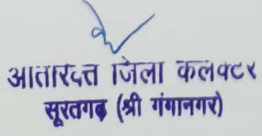 आतिरिक्त जिला कलक्टर
सूरतगढ़ (श्री गंगानगर)